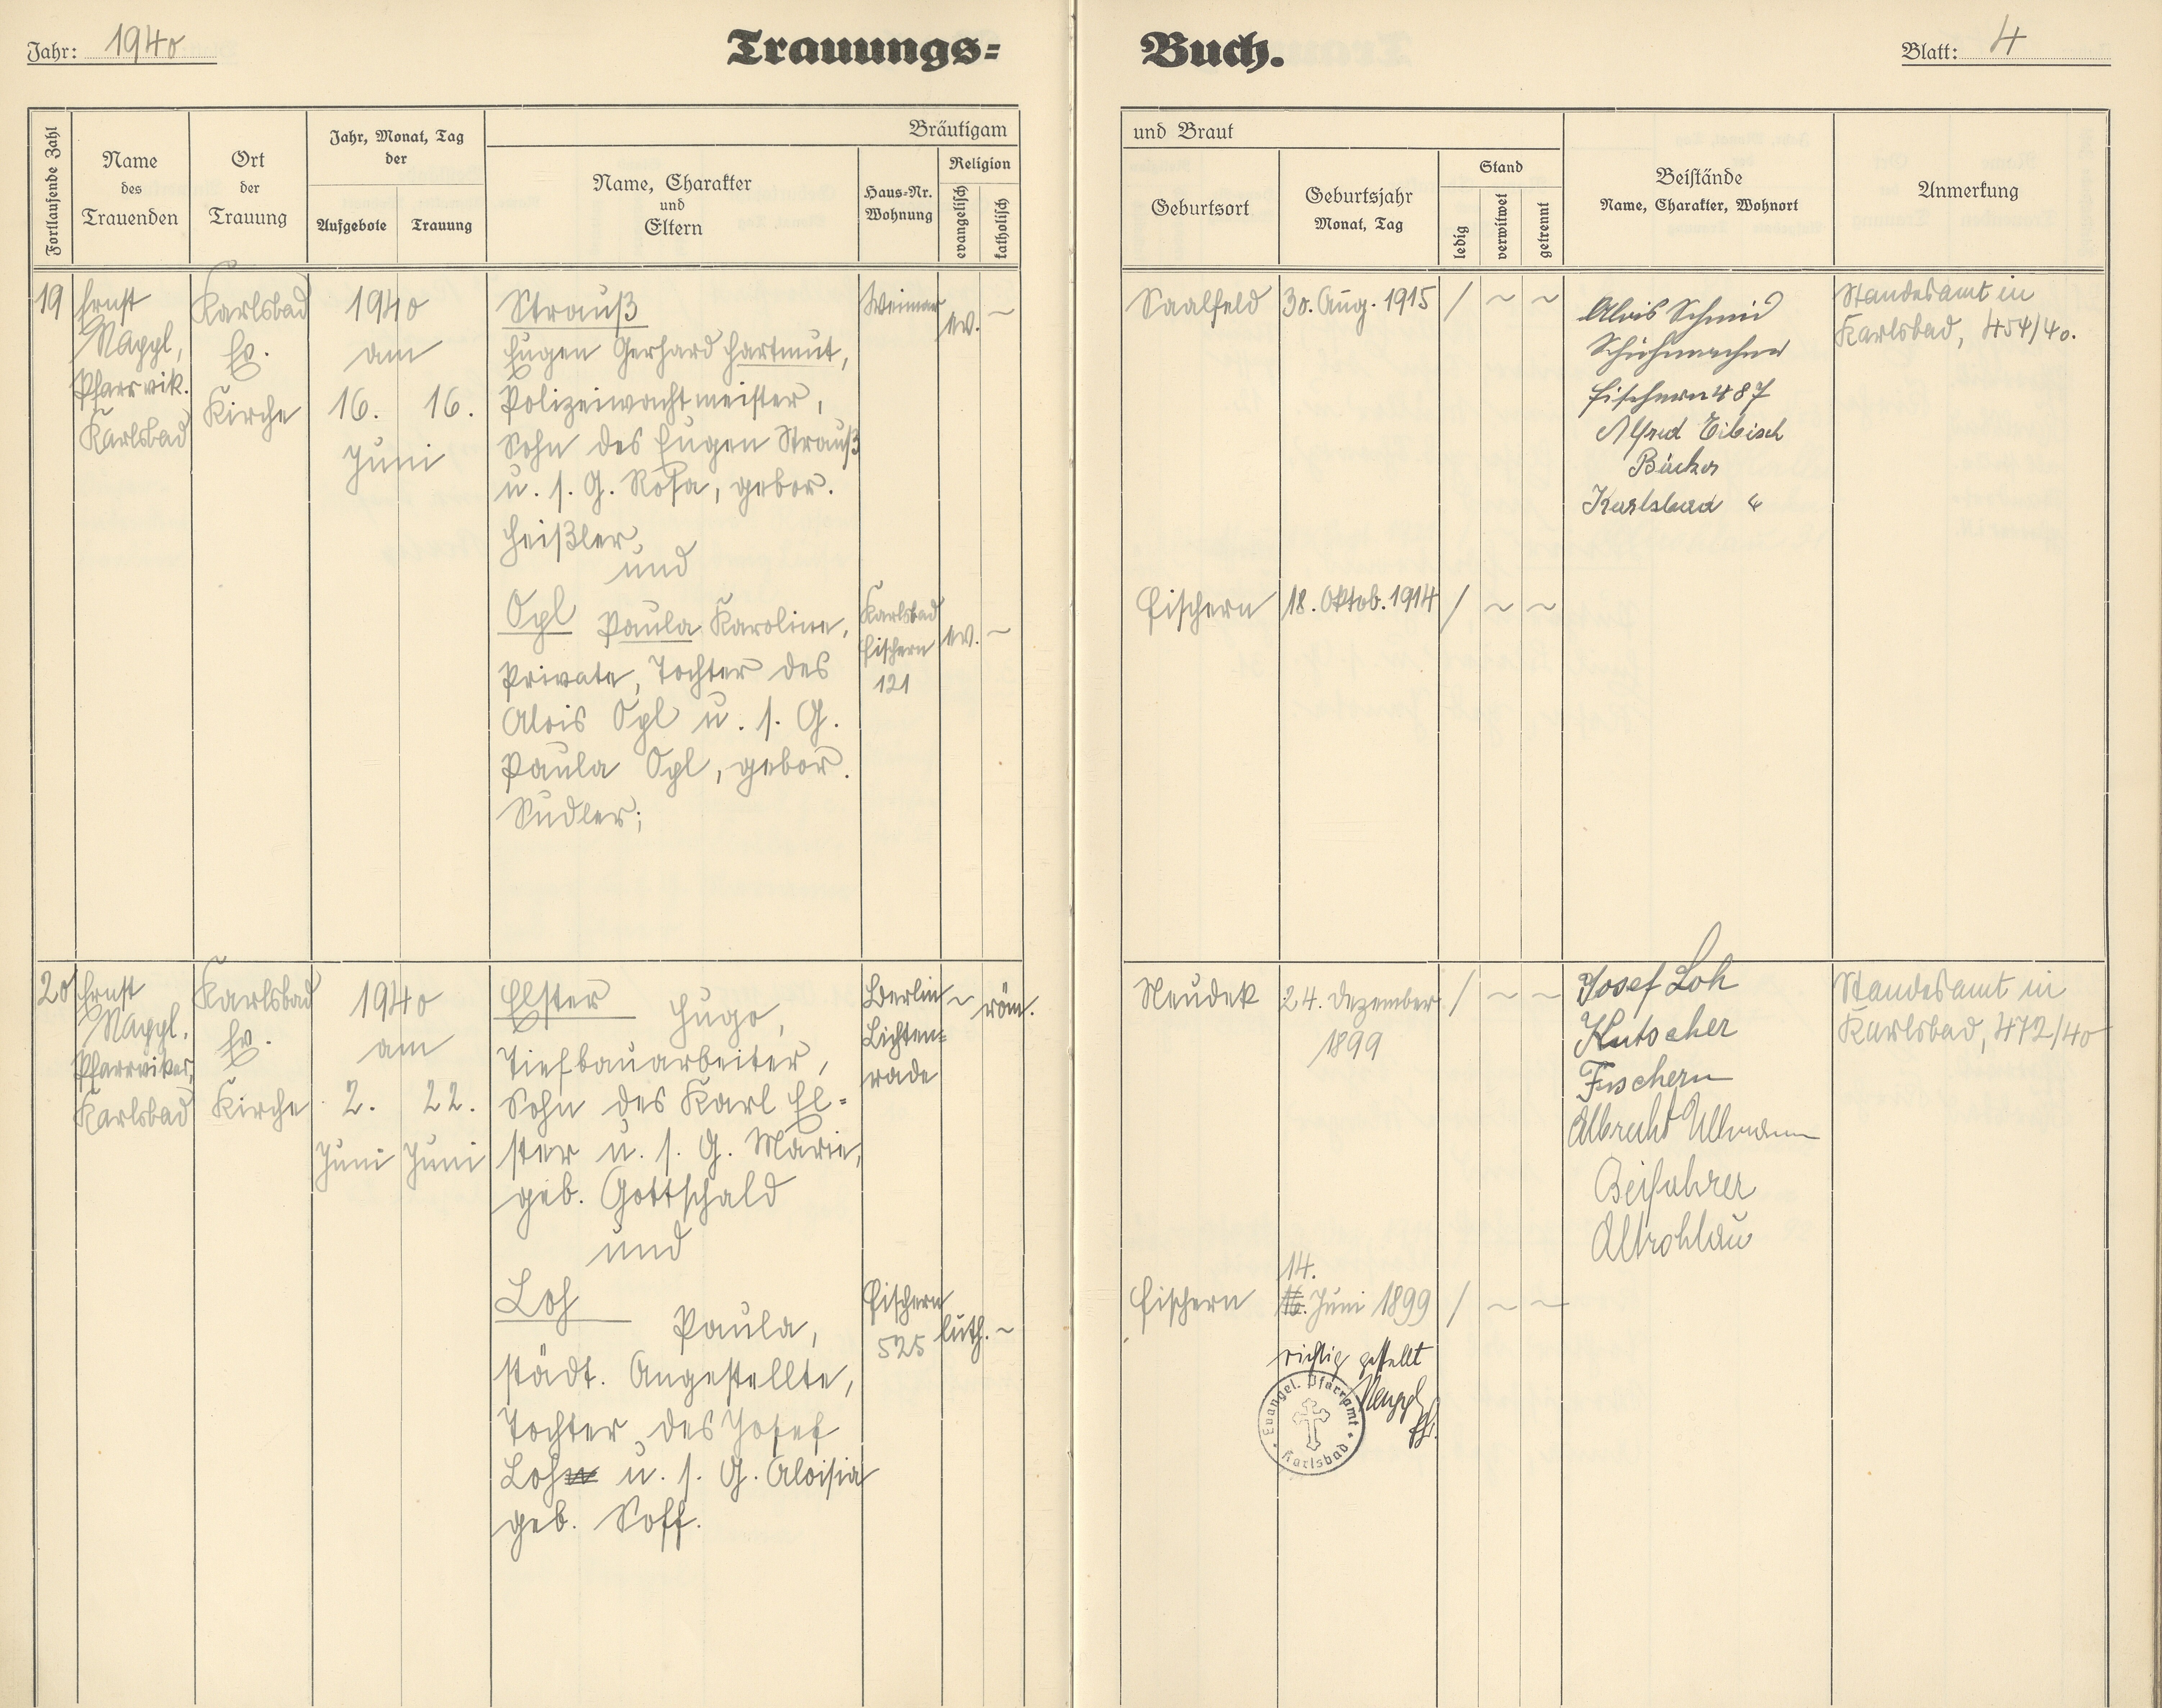 Jahr: 1940
Trauungs=
Buch.
Blatt: 4
Fortlaufende Zahl
Name
des
Trauenden
Ort
der
Trauung
Jahr, Monat, Tag
der
Aufgebote
Trauung
Bräutigam
Name, Charakter
und
Eltern
Haus=Nr.
Wohnung
Religion
evangelisch
katholisch
und Braut
Geburtsort
Geburtsjahr
Monat, Tag
Stand
ledig
verwitwet
getrennt
Beistände
Name, Charakter, Wohnort
Anmerkung
19
Ernst
Nappl,
Pfarrvik.
Karlsbad
Karlsbad
Ev.
Kirche
1940
am
16. 16.
Juni
Strauß
Eugen Gerhard Hartmut,
Polizeiwachtmeister,
Sohn des Eugen Strauß
u. s. G. Rosa, gebor.
Heißler,
und
Opl Paula Karoline,
Private, Tochter des
Alois Opl u. s. G.
Paula Opl, gebor.
Sudler;
Weimar
ev. ~
Karlsbad
Fischern
121
ev. ~
Saalfeld
30. Aug. 1915
/ ~ ~
Fischern
18. Oktob. 1914
/ ~ ~
Alois Schmid
Schuhmacher
Fischern 487
Alfred Eibisch
Bäcker
Karlsbad
Standesamt in
Karlsbad, 454/40.
20
Ernst
Nappl,
Pfarrvikar,
Karlsbad
Karlsbad
Ev.
Kirche
1940
am
2. 22.
Juni Juni
Elster Hugo,
Tiefbauarbeiter,
Sohn des Karl El=
ster u. s. G. Marie,
geb. Gottschald
und
Loh
Paula,
städt. Angestellte,
Tochter des Josef
Loh u. s. G. Aloisia
geb. Soff.
Berlin
Lichten=
rade
~ röm.
Fischern
525
luth. ~
Neudek
24. Dezember
1899
/ ~ ~
Fischern
14.
16. Juni 1899
/ ~ ~
richtig gestellt
Nappl
Evangel. Pfarramt
Karlsbad
Josef Loh
Kutscher
Fischern
Albrecht Ullmann
Beifahrer
Altrohlau
Standesamt in
Karlsbad, 472/40